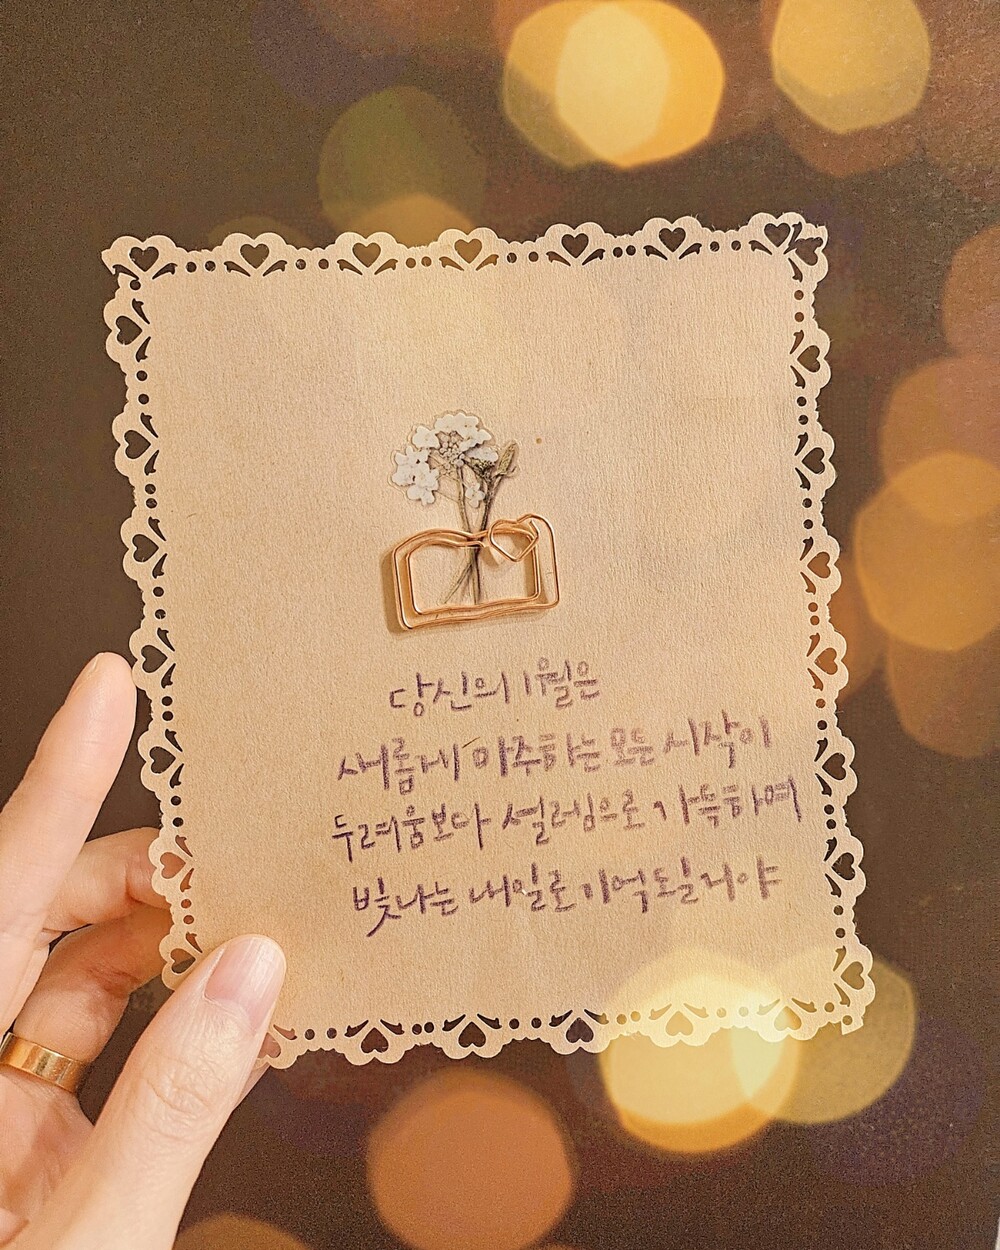 당신의 1월은
새롭게 마주하는 모든 시작이
두려움보다 설레임으로 가득하며
빛나는 내일로 기억될거야